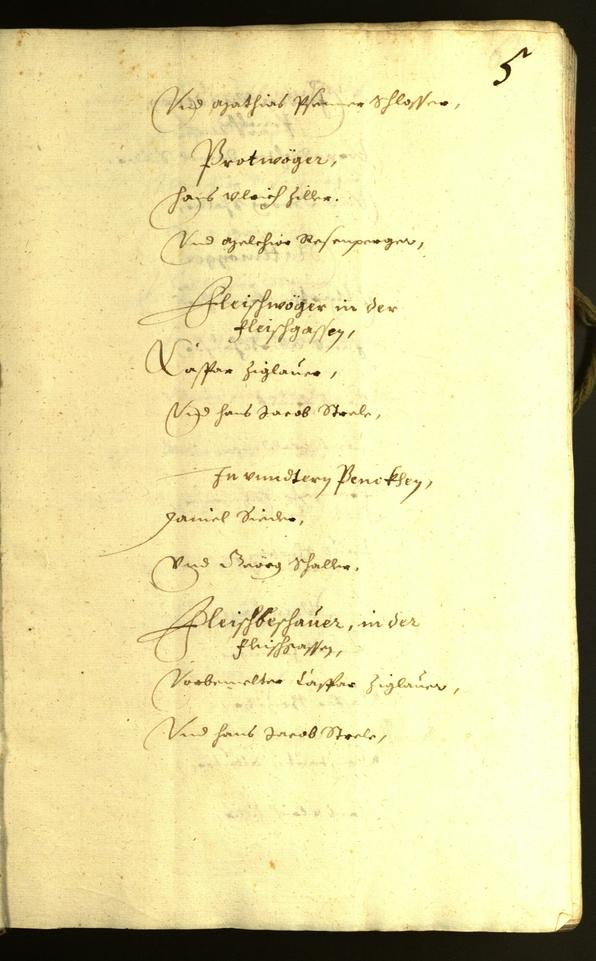 5
Vnd Mathias Pfenner Schlosser,
Brotwöger,
Hans Vlrich Hiller.
Vnd Melchior Rosenperger,
Fleischwöger in der
Fleischgassen,
Caspar Ziglauer,
Vnd Hans Jacob Strele,
In vndtern Penckhen,
Daniel Sieder,
Vnd Geörg Schaller.
Fleischbeschauer, in der
Fleischgassen,
Vorbemelter Caspar Ziglauer,
Vnd Hans Jacob Strele,